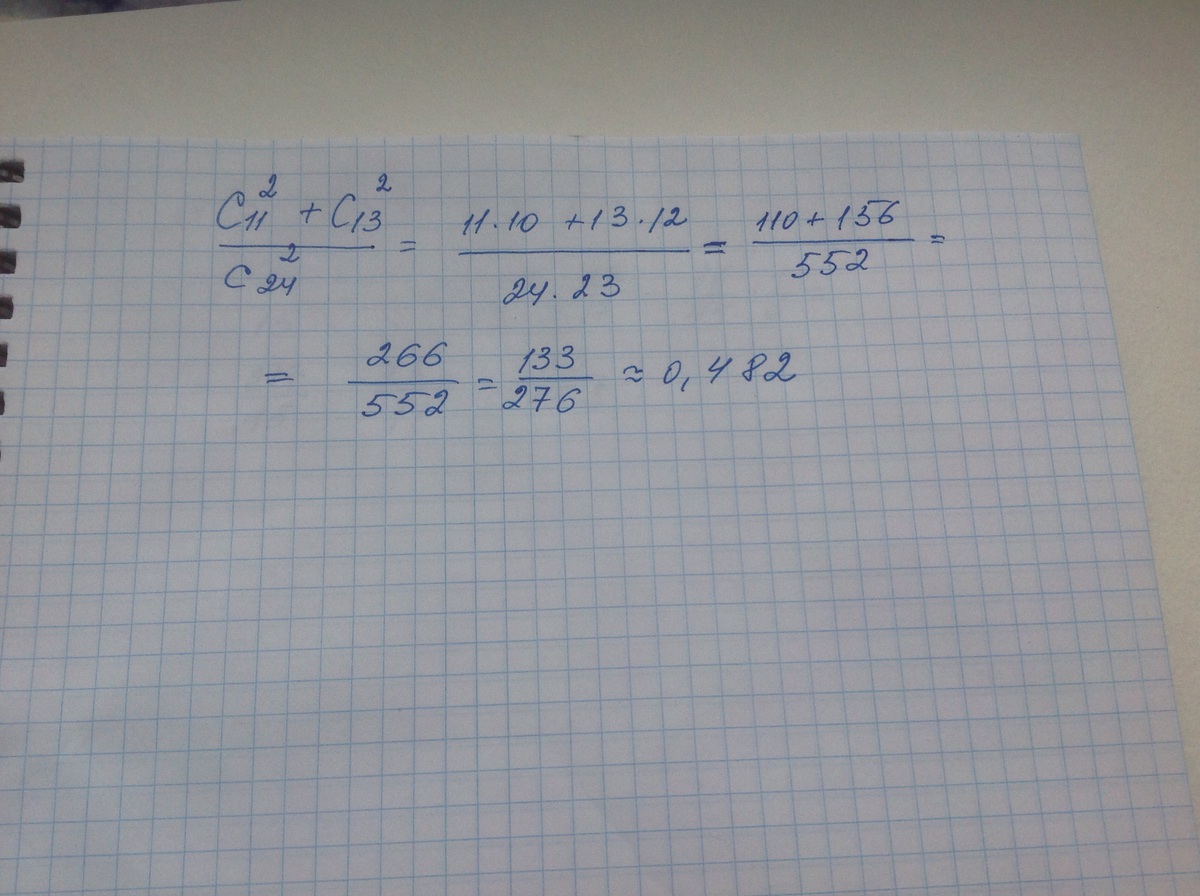 (C₁₁² + C₁₃²) / C₂₄² = (11·10 + 13·12) / (24·23) = (110 + 156) / 552 =
= 266 / 552 = 133 / 276 ≈ 0,482